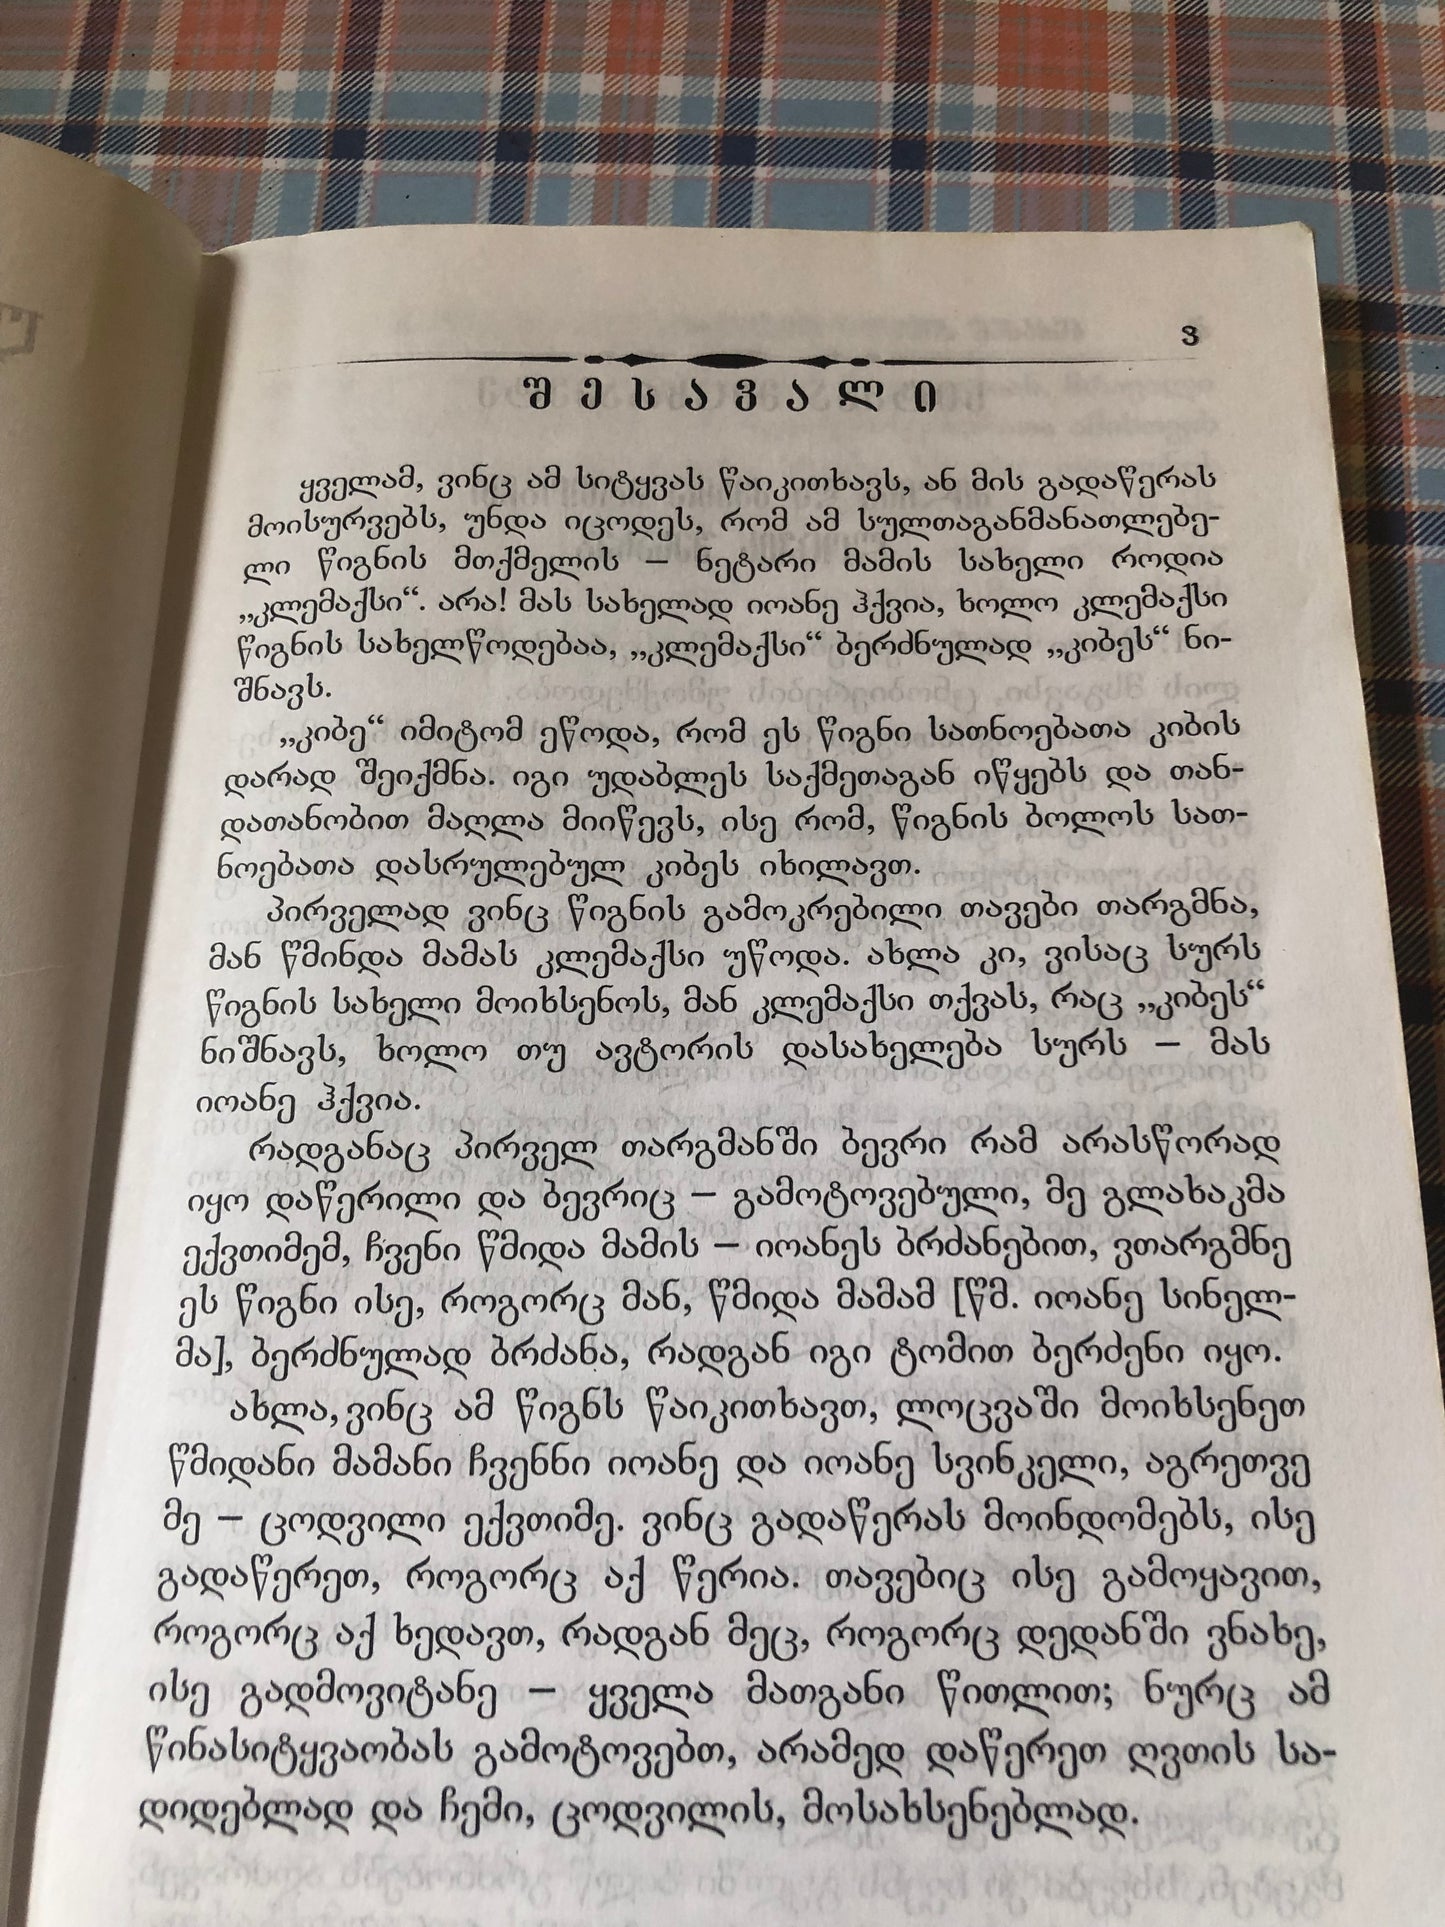 ვ
შესავალი
ყველამ, ვინც ამ სიტყვას წაიკითხავს, ან მის გადაწერას
მოისურვებს, უნდა იცოდეს, რომ ამ სულთაგანმანათლებე-
ლი წიგნის მთქმელის – ნეტარი მამის სახელი როდია
„კლემაქსი“. არა! მას სახელად იოანე ჰქვია, ხოლო კლემაქსი
წიგნის სახელწოდებაა, „კლემაქსი“ ბერძნულად „კიბეს“ ნი-
შნავს.
„კიბე“ იმიტომ ეწოდა, რომ ეს წიგნი სათნოებათა კიბის
დარად შეიქმნა. იგი უდაბლეს საქმეთაგან იწყებს და თან-
დათანობით მაღლა მიიწევს, ისე რომ, წიგნის ბოლოს სათ-
ნოებათა დასრულებულ კიბეს იხილავთ.
პირველად ვინც წიგნის გამოკრებილი თავები თარგმნა,
მან წმინდა მამას კლემაქსი უწოდა. ახლა კი, ვისაც სურს
წიგნის სახელი მოიხსენოს, მან კლემაქსი თქვას, რაც „კიბეს“
ნიშნავს, ხოლო თუ ავტორის დასახელება სურს – მას
იოანე ჰქვია.
რადგანაც პირველ თარგმანში ბევრი რამ არასწორად
იყო დაწერილი და ბევრიც – გამოტოვებული, მე გლახაკმა
ექვთიმემ, ჩვენი წმიდა მამის – იოანეს ბრძანებით, ვთარგმნე
ეს წიგნი ისე, როგორც მან, წმიდა მამამ [წმ. იოანე სინელ-
მა], ბერძნულად ბრძანა, რადგან იგი ტომით ბერძენი იყო.
ახლა, ვინც ამ წიგნს წაიკითხავთ, ლოცვაში მოიხსენეთ
წმიდანი მამანი ჩვენნი იოანე და იოანე სვინკელი, აგრეთვე
მე – ცოდვილი ექვთიმე. ვინც გადაწერას მოინდომებს, ისე
გადაწერეთ, როგორც აქ წერია. თავებიც ისე გამოყავით,
როგორც აქ ხედავთ, რადგან მეც, როგორც დედანში ვნახე,
ისე გადმოვიტანე – ყველა მათგანი წითლით; ნურც ამ
წინასიტყვაობას გამოტოვებთ, არამედ დაწერეთ ღვთის სა-
დიდებლად და ჩემი, ცოდვილის, მოსახსენებლად.